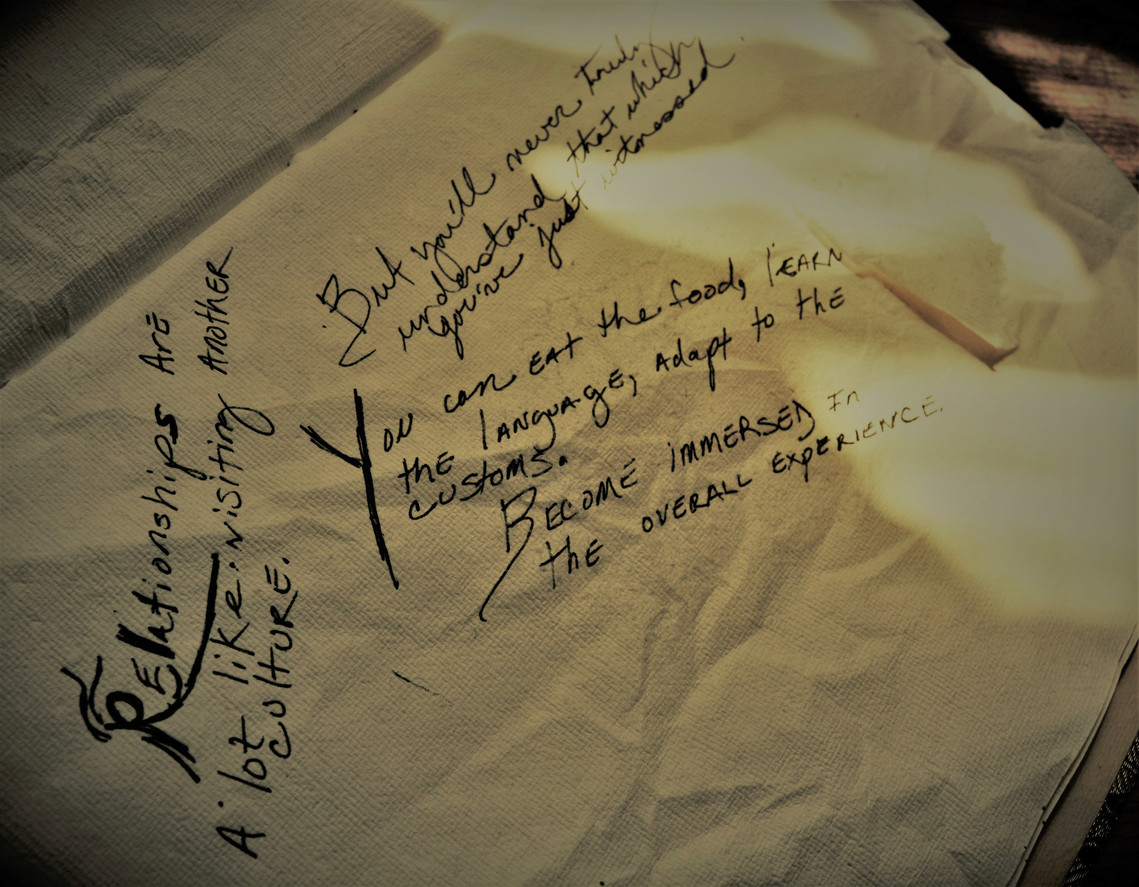 RElationships ArE
A lot likE visiting ANOTHER
cultURE.
You can EAT the food, lEARN
the lANguAgE, Adapt to thE
customs.
BECOME iMMERSED In
thE OVERALL EXPERIENCE.
But you'll never truly
understand that which
you've just witnessed.